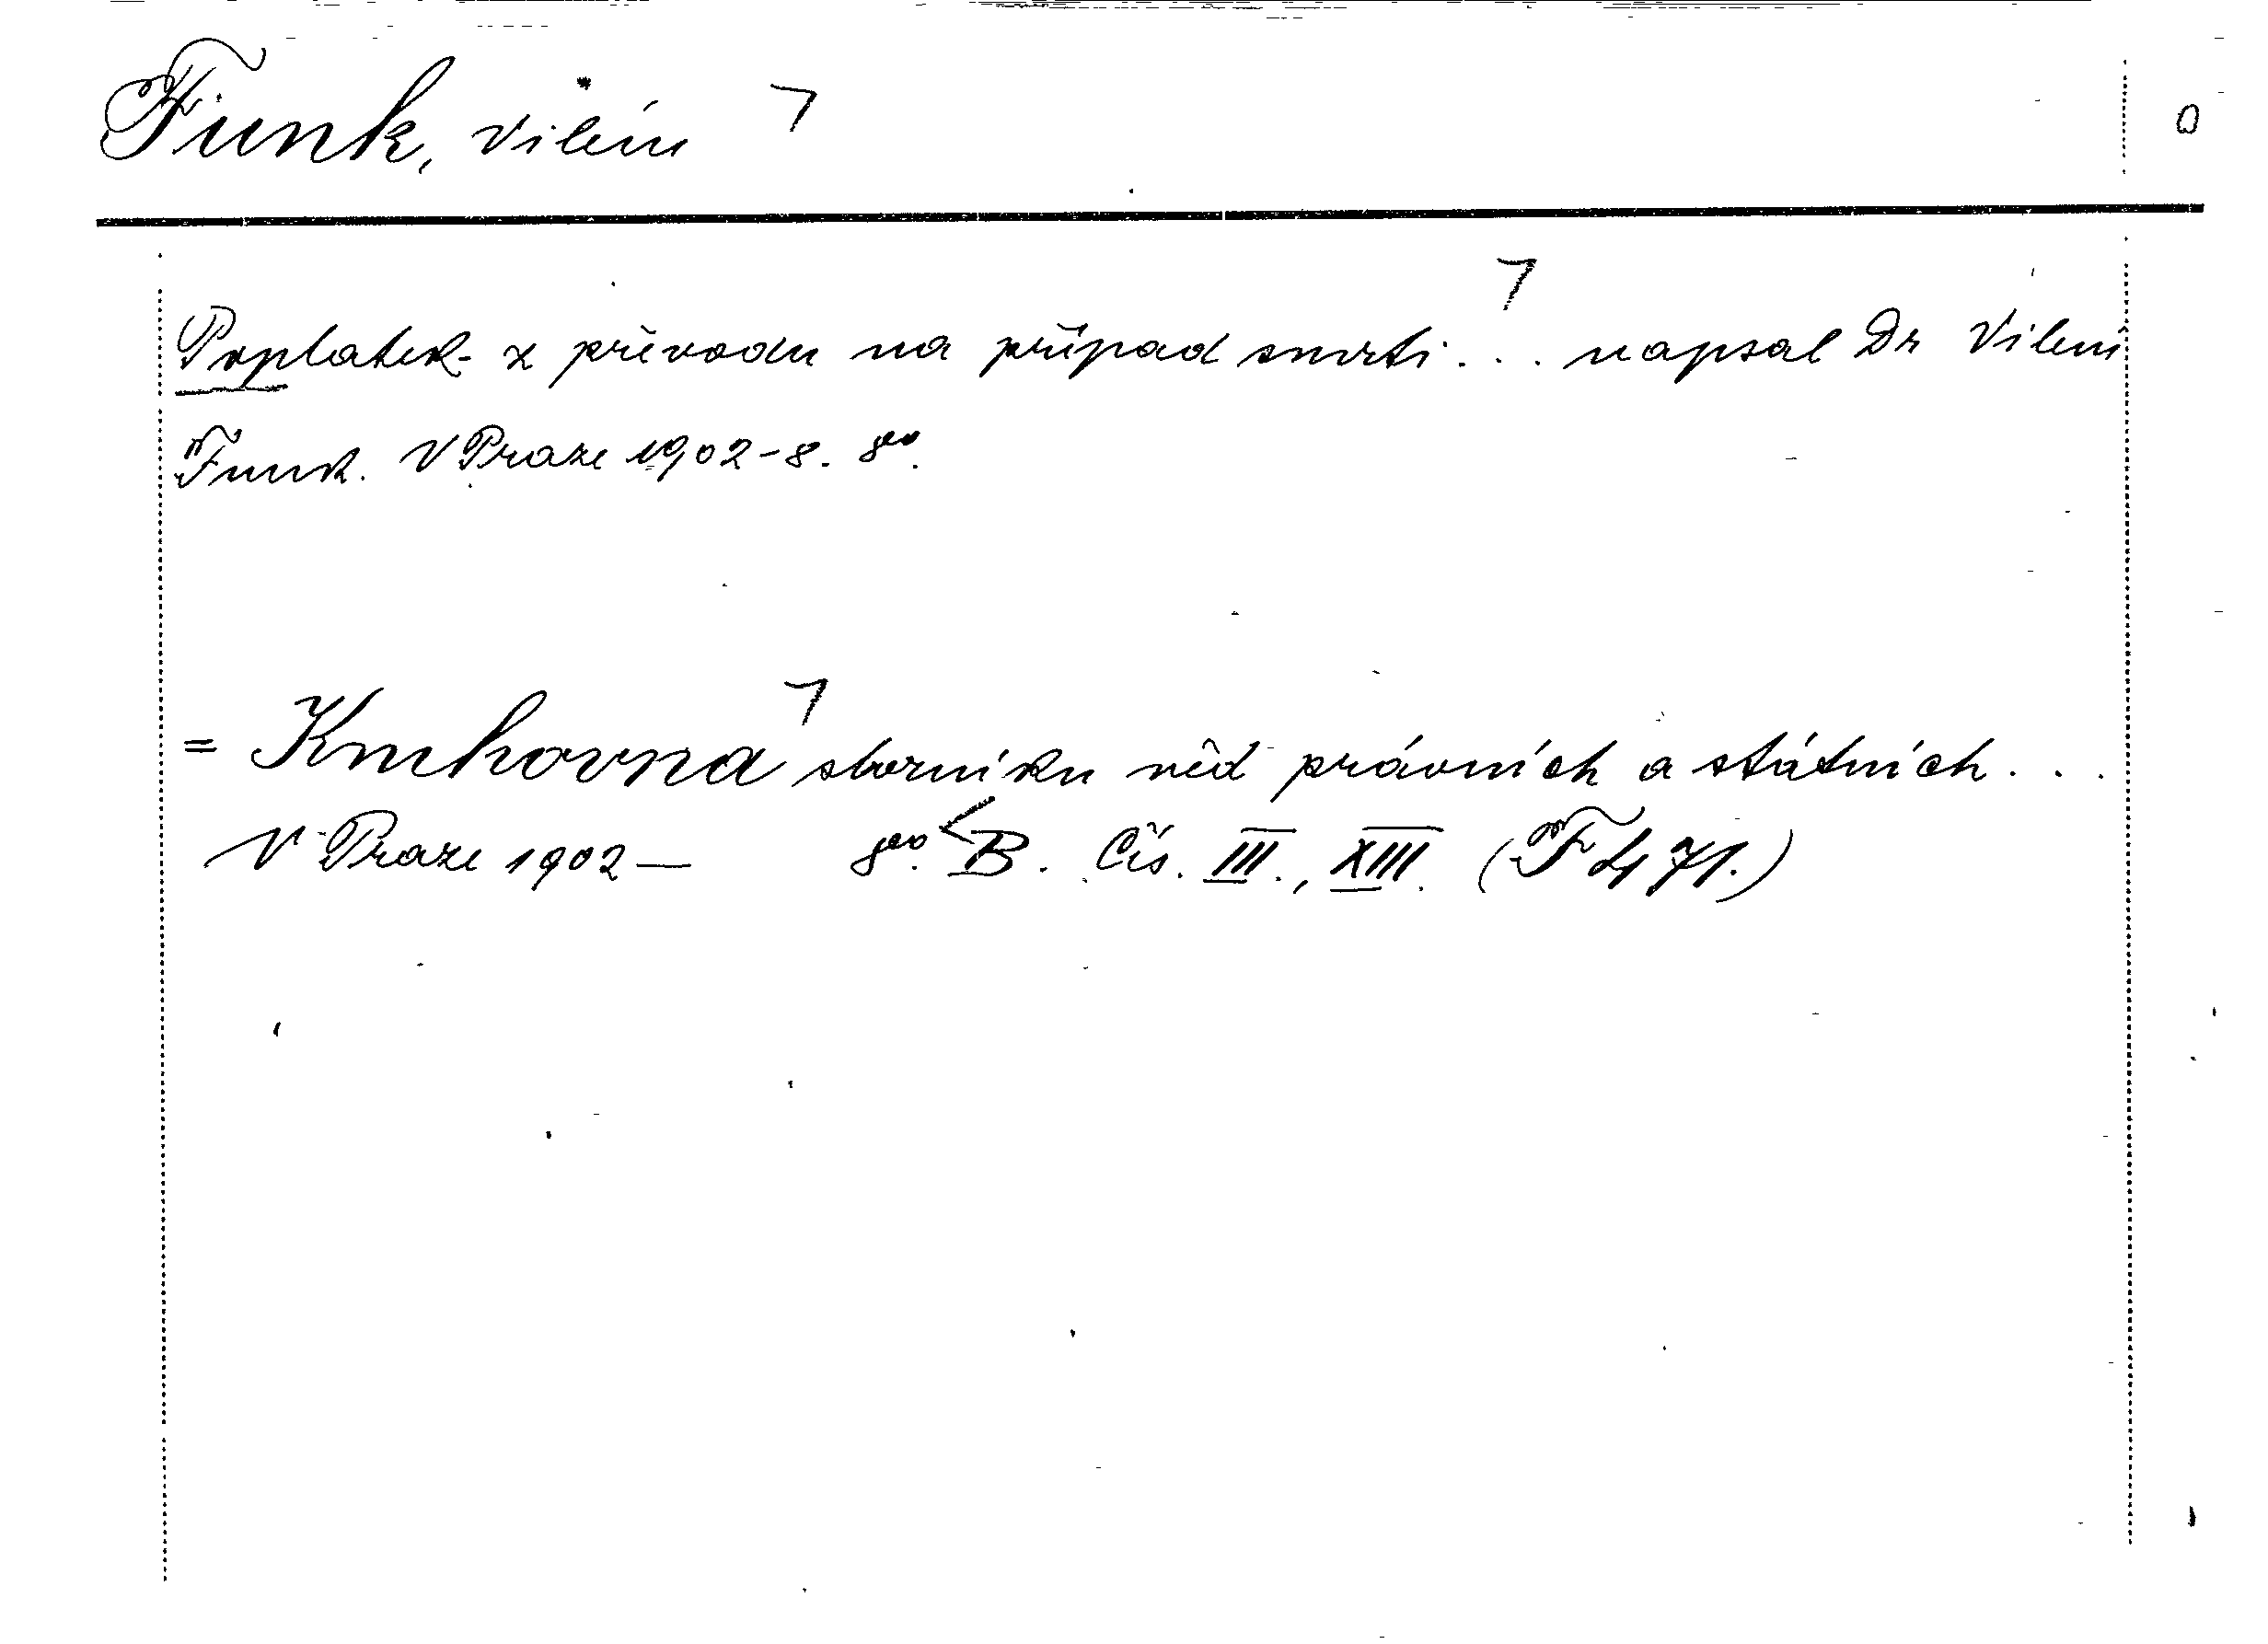 Funk, Vilém
Poplatek z převodu na případ smrti... napsal Dr Vilém
Funk. V Praze 1902-8. 8vo.
= Knihovna sborníku věd právních a státních...
V Praze 1902— 8vo. B. Čís. III., XIII. (F 471.)